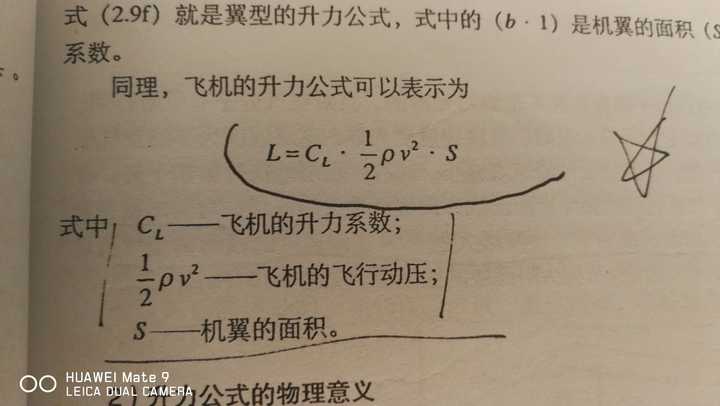 式（2.9f）就是翼型的升力公式，式中的（b · 1）是机翼的面积（S
系数。
同理，飞机的升力公式可以表示为
L=C_L · 1/2 ρv² · S
式中 C_L——飞机的升力系数；
1/2 ρv²——飞机的飞行动压；
S——机翼的面积。
升力公式的物理意义
HUAWEI Mate 9
LEICA DUAL CAMERA